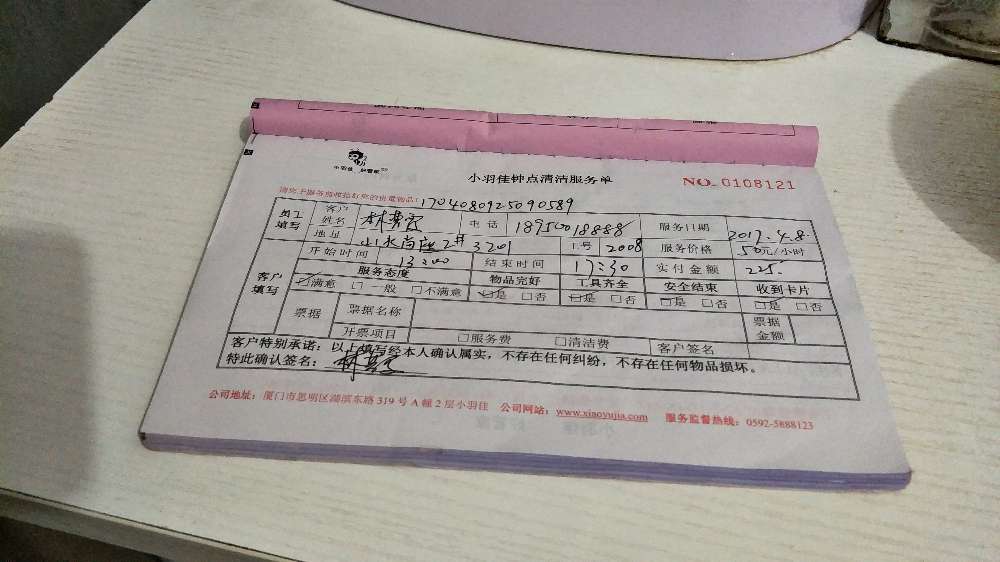 小羽佳 好管家
小羽佳钟点清洁服务单 NO. 0108121
1704080925090589
员工填写 客户姓名 电话 18950018888 服务日期 2017.4.8.
地址 2# 3201 工号 2008 服务价格 50元/小时
客户填写 开始时间 13:00 结束时间 17:30 实付金额 225.
服务态度 物品完好 工具齐全 安全结束 收到卡片
☑满意 □一般 □不满意 ☑是 □否 ☑是 □否 ☑是 □否 ☑是 □否
票据 票据名称 票据金额
开票项目 □服务费 □清洁费 客户签名
客户特别承诺：以上填写经本人确认属实，不存在任何纠纷，不存在任何物品损坏。
特此确认签名：
公司地址：厦门市思明区湖滨东路 319 号 A 幢 2 层小羽佳 公司网站：www.xiaoyujia.com 服务监督热线：0592-5888123